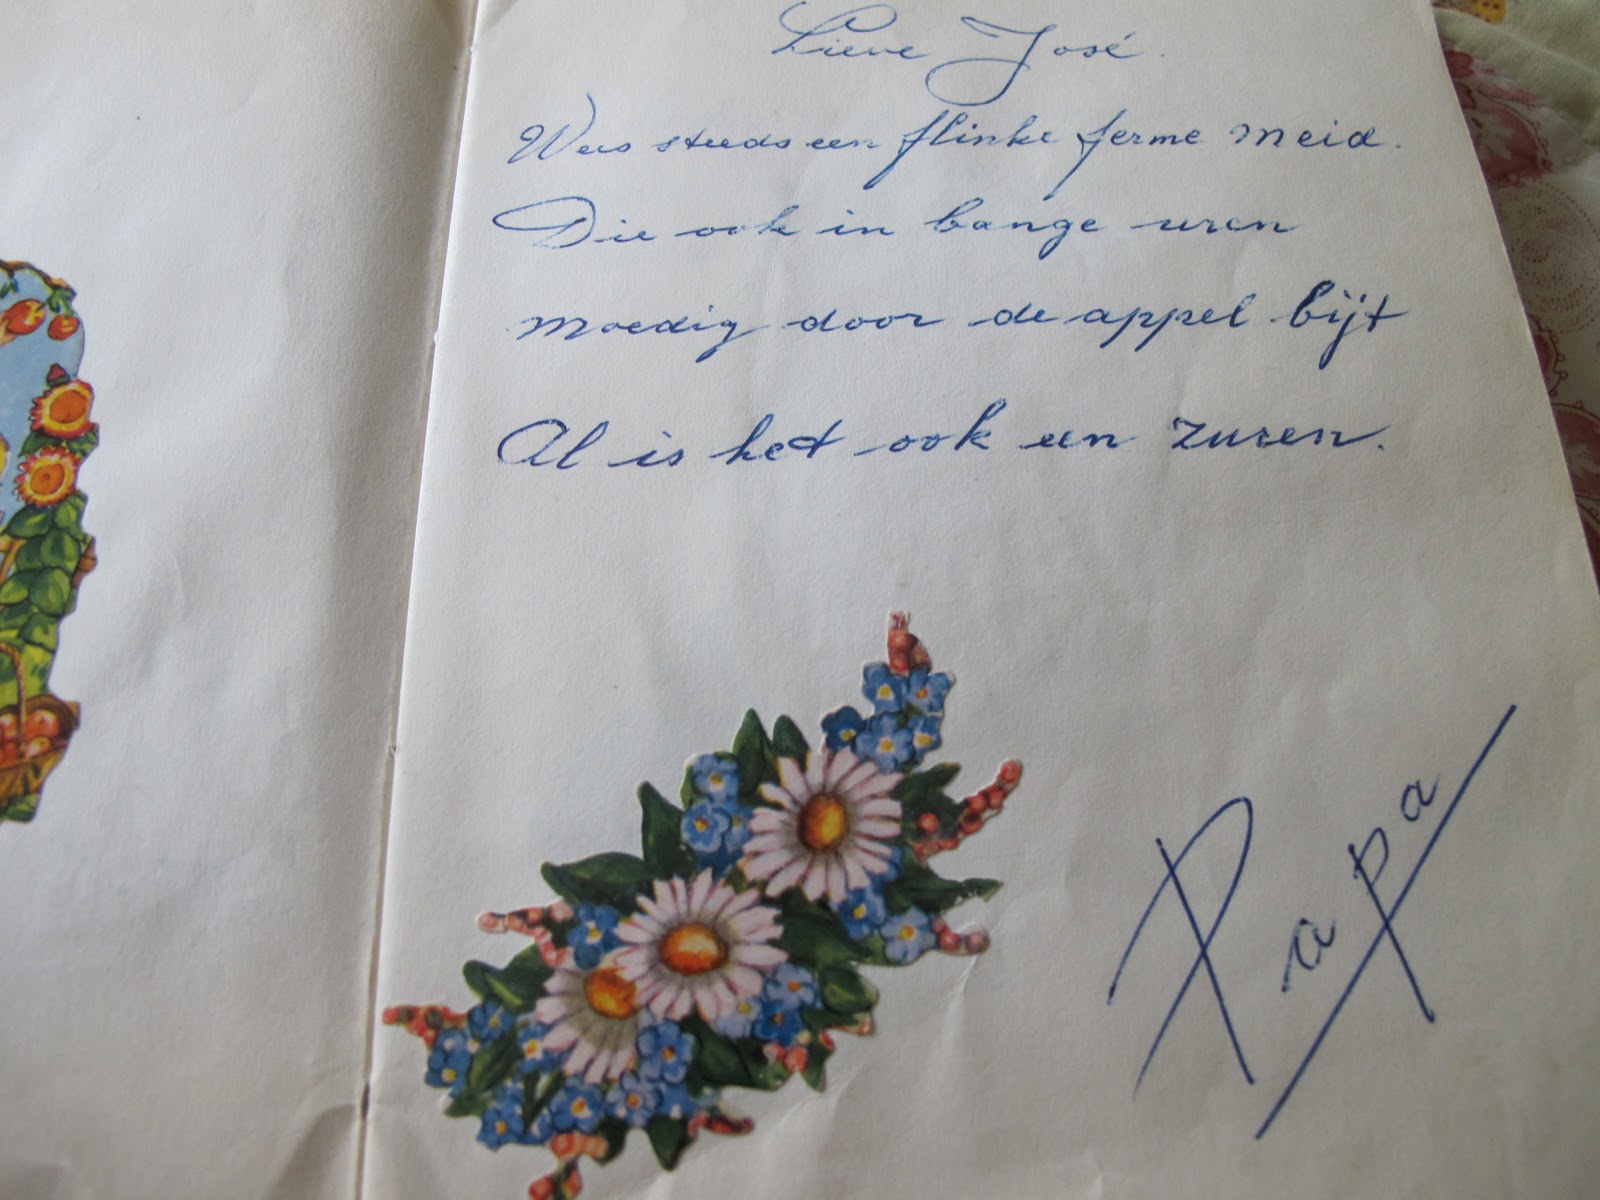 Lieve José.
Wees steeds een flinke ferme meid.
Die ook in bange uren
moedig door de appel bijt
Al is het ook een zuren.
Papa